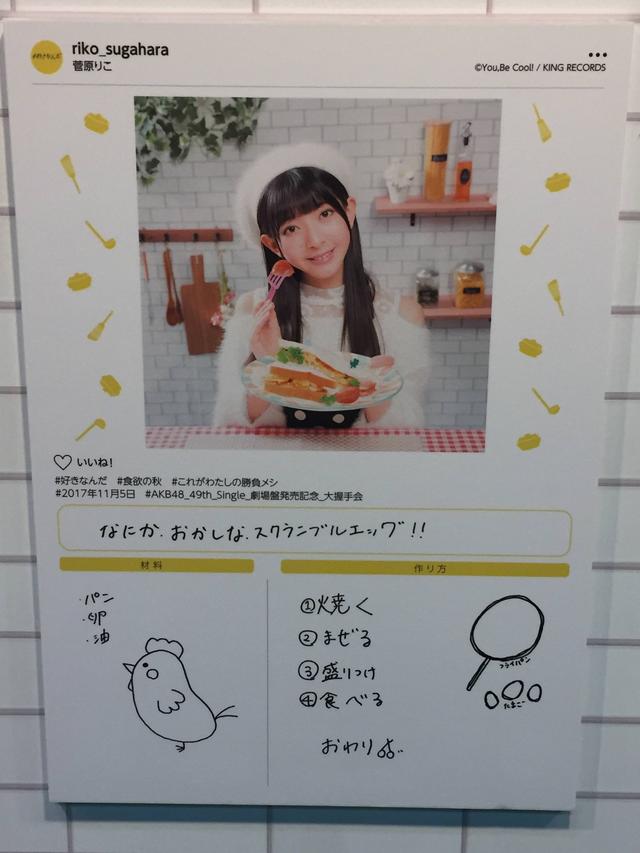 #好きなんだ
riko_sugahara
菅原りこ
©You,Be Cool! / KING RECORDS
いいね!
#好きなんだ #食欲の秋 #これがわたしの勝負メシ
#2017年11月5日 #AKB48_49th_Single_劇場盤発売記念_大握手会
なにか.おかしな.スクランブルエッグ!!
材料
・パン
・卵
・油
作り方
①焼く
②まぜる
③盛りつけ
④食べる
フライパン
たまご
おわり